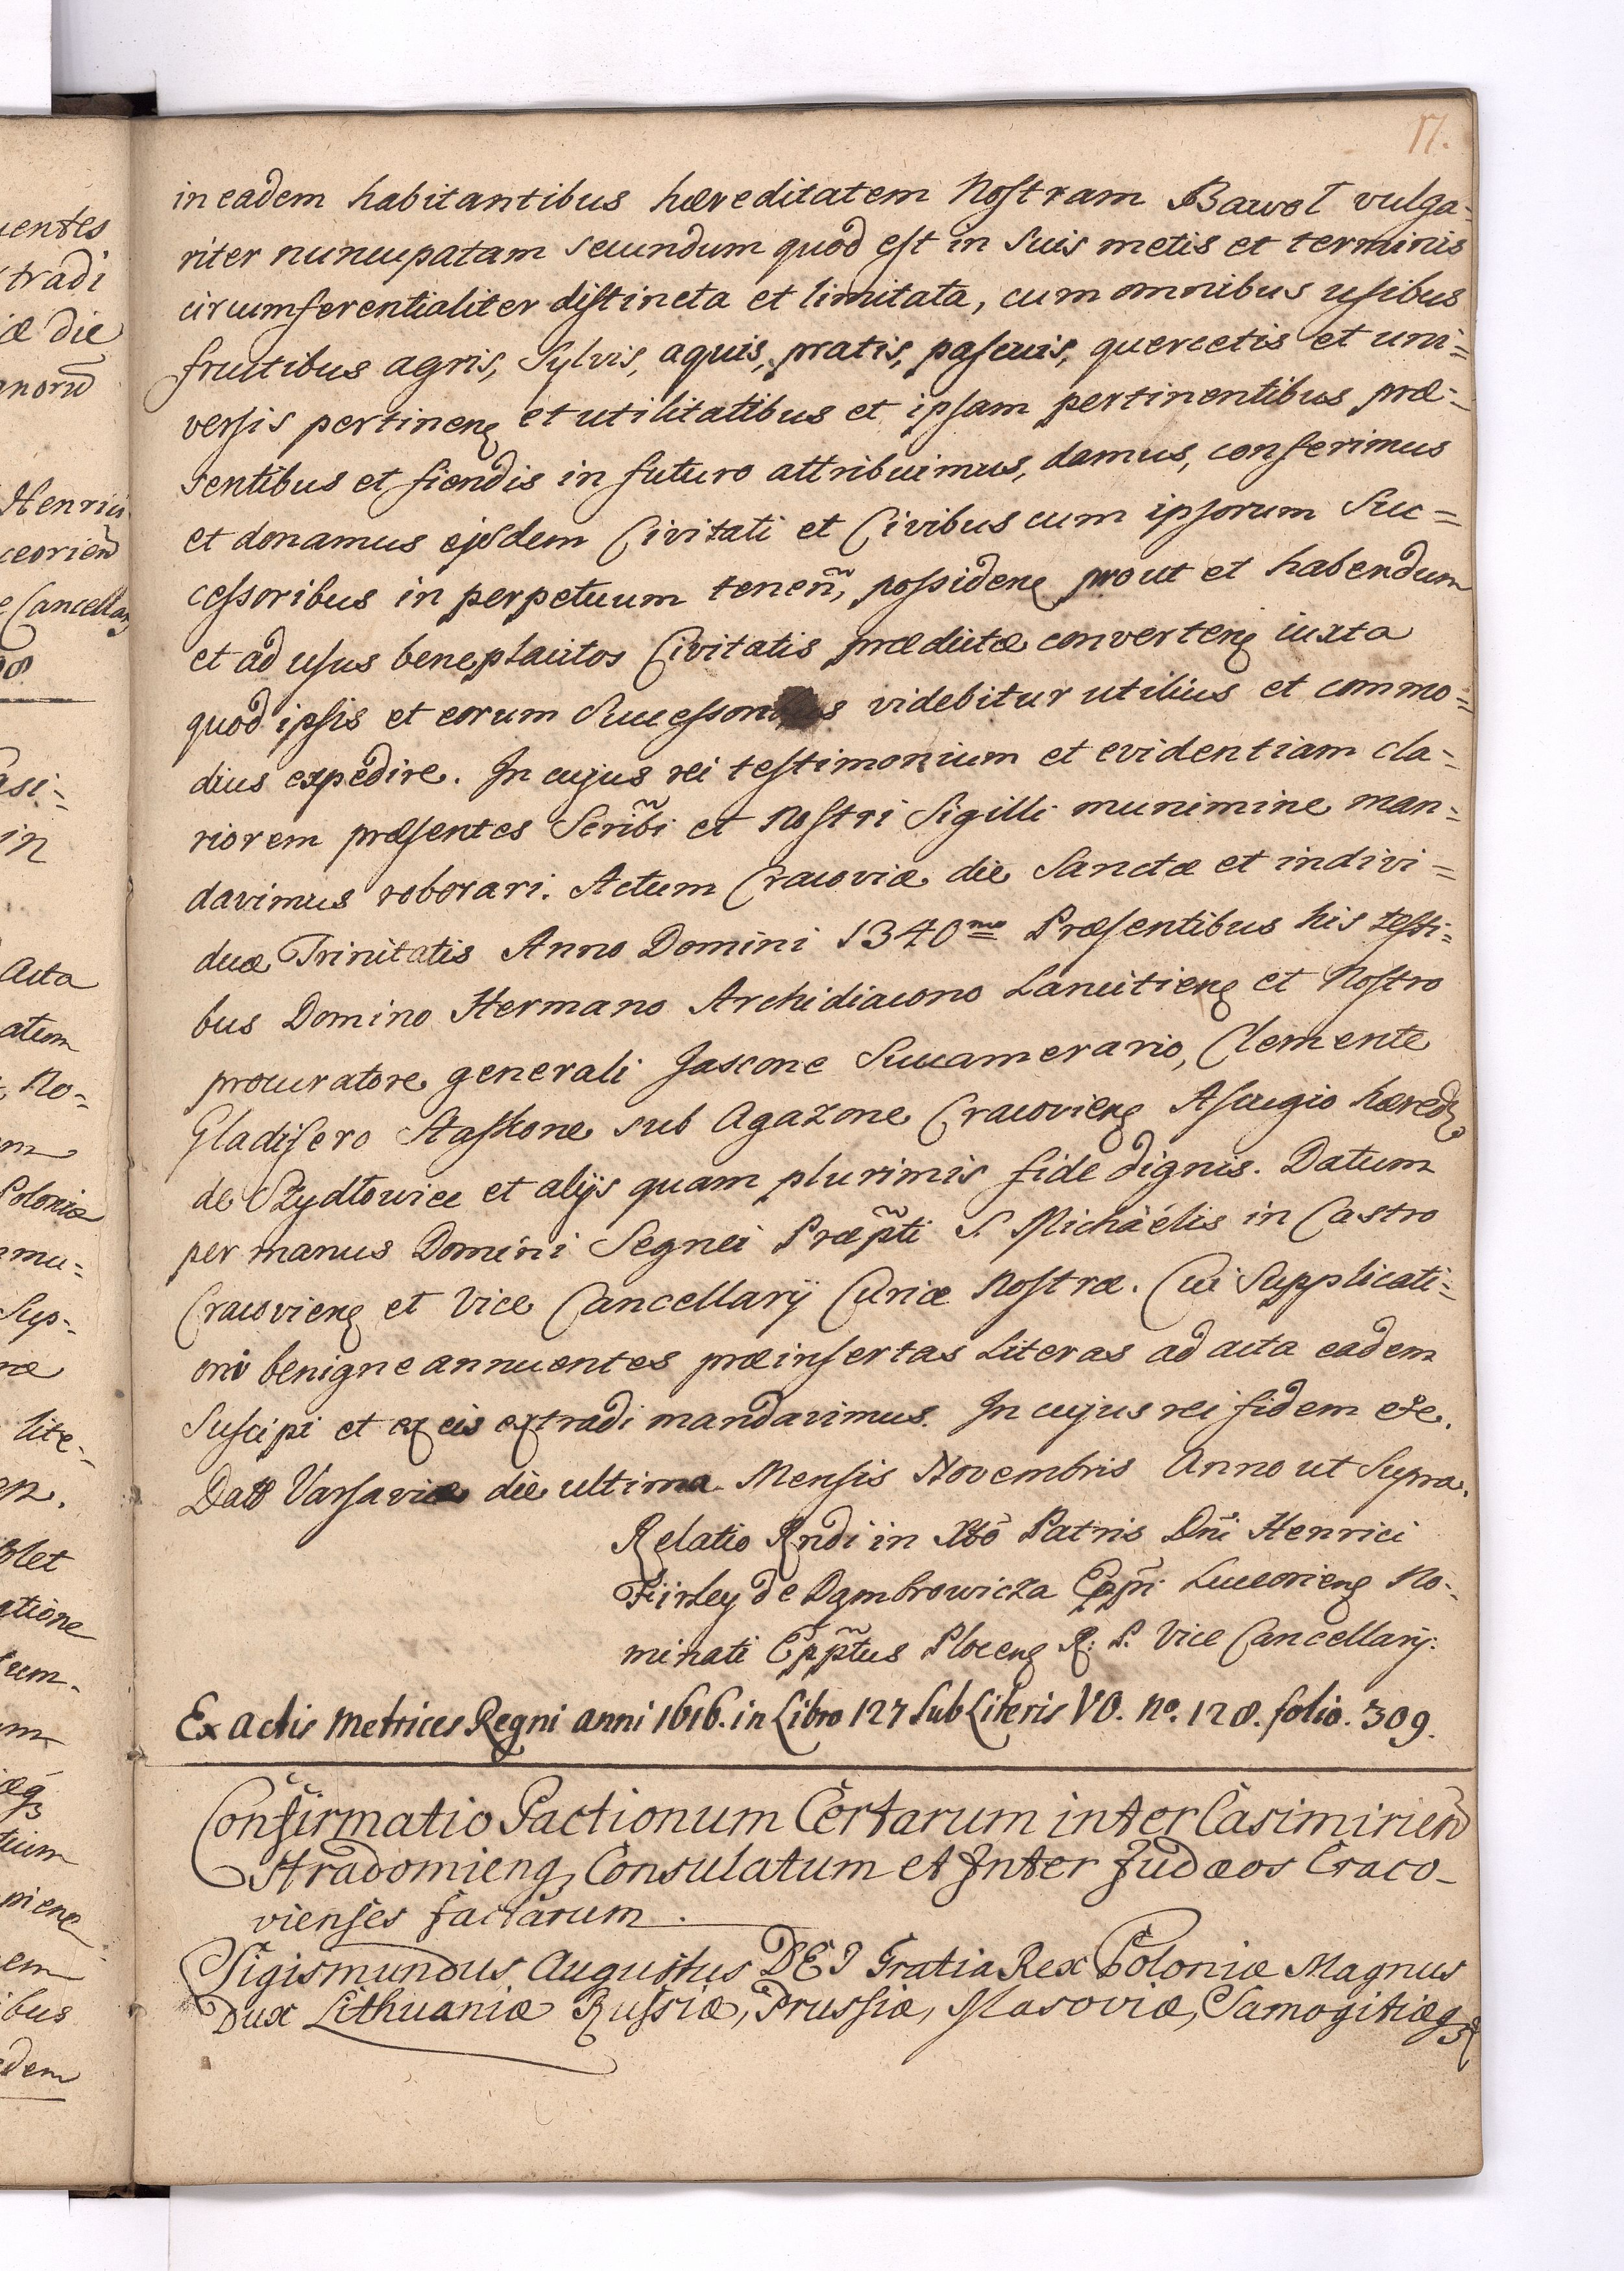 17.
in eadem habitantibus hæreditatem Nostram Bawoł vulga-
riter nuncupatam secundum quod est in suis metis et terminis
circumferentialiter distincta et limitata, cum omnibus usibus
fructibus agris, Sylvis, aquis, pratis, pascuis, quercetis et uni=
versis pertinen et utilitatibus et ipsam pertinentibus præ-
sentibus et fiendis in futuro attribuimus, damus, conferimus
et donamus ejsdem Civitati et Civibus cum ipsorum Suc=
cessoribus in perpetuum tenen̄, possiden prout et habendum
et ad usus beneplacitos Civitatis prædictæ converten iuxta
quod ipsis et eorum Successoribus videbitur utilius et commo=
dius expedire. In cujus rei testimonium et evidentiam cla-
riorem præsentes Scrib̃i et Nostri Sigilli munimine man-
davimus roborari. Actum Cracoviæ die Sanctæ et indivi=
duæ Trinitatis Anno Domini 1340mo Præsentibus his testi=
bus Domino Hermano Archidiacono Lancitien et Nostro
procuratore generali Jascone Succamerario, Clemente
Gladifero Staskone sub Agazone Cracovien Ascugio hæred
de Szydłowice et alijs quam plurimis fide dignis. Datum
per manus Domini Segnei Præp̃ti S. Michäelis in Castro
Cracovien et Vice Cancellarij Curiæ Nostræ. Cui Supplicati-
oni benigne annuentes præinsertas Literas ad acta eadem
Suscipi et ex eis extradi mandavimus. In cujus rei fidem etc.
Datt Varsaviæ die ultima Mensis Novembris Anno ut Supra.
Relatio Rndi in Xtõ Patris Dñi Henrici
Fiirley de Dąmbrowicza Epp̃i Luceorien No-
minati Epp̃tus Plocen R. P. Vice Cancellarij.
Ex actis Metrices Regni anni 1616. in Libro 127 Sub Literis VO. No. 128. folio. 309.
Confirmatio Pactionum Certarum inter Casimirien
Stradomieng Consulatum et Inter Judæos Craco-
vienses factarum.
Sigismundus Augustus DEI Gratia Rex Poloniæ Magnus
Dux Lithuaniæ Russiæ, Prussiæ, Masoviæ, Samogitiæq3